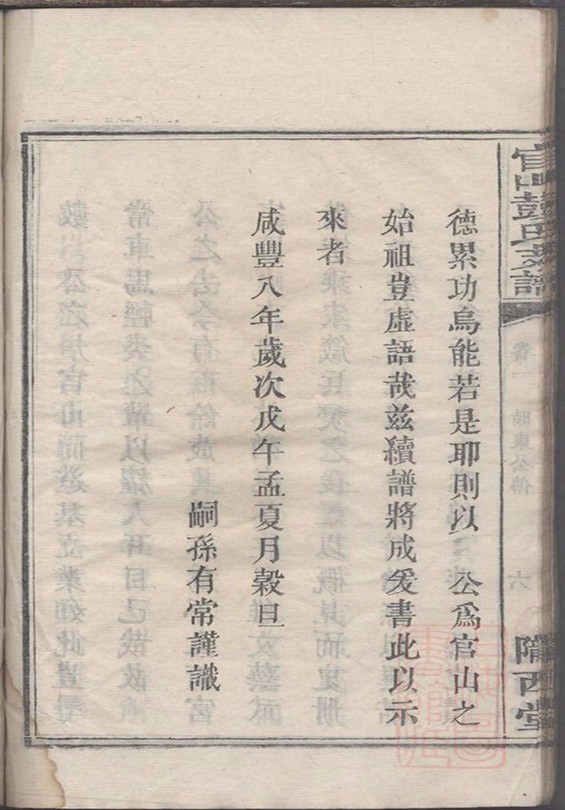 官山彭氏支譜
卷一
六
隴西堂
德累功烏能若是耶則以 公爲官山之
始祖豈虛語哉茲續譜將成爰書此以示
來者
咸豐八年歲次戊午孟夏月穀旦
嗣孫有常謹識